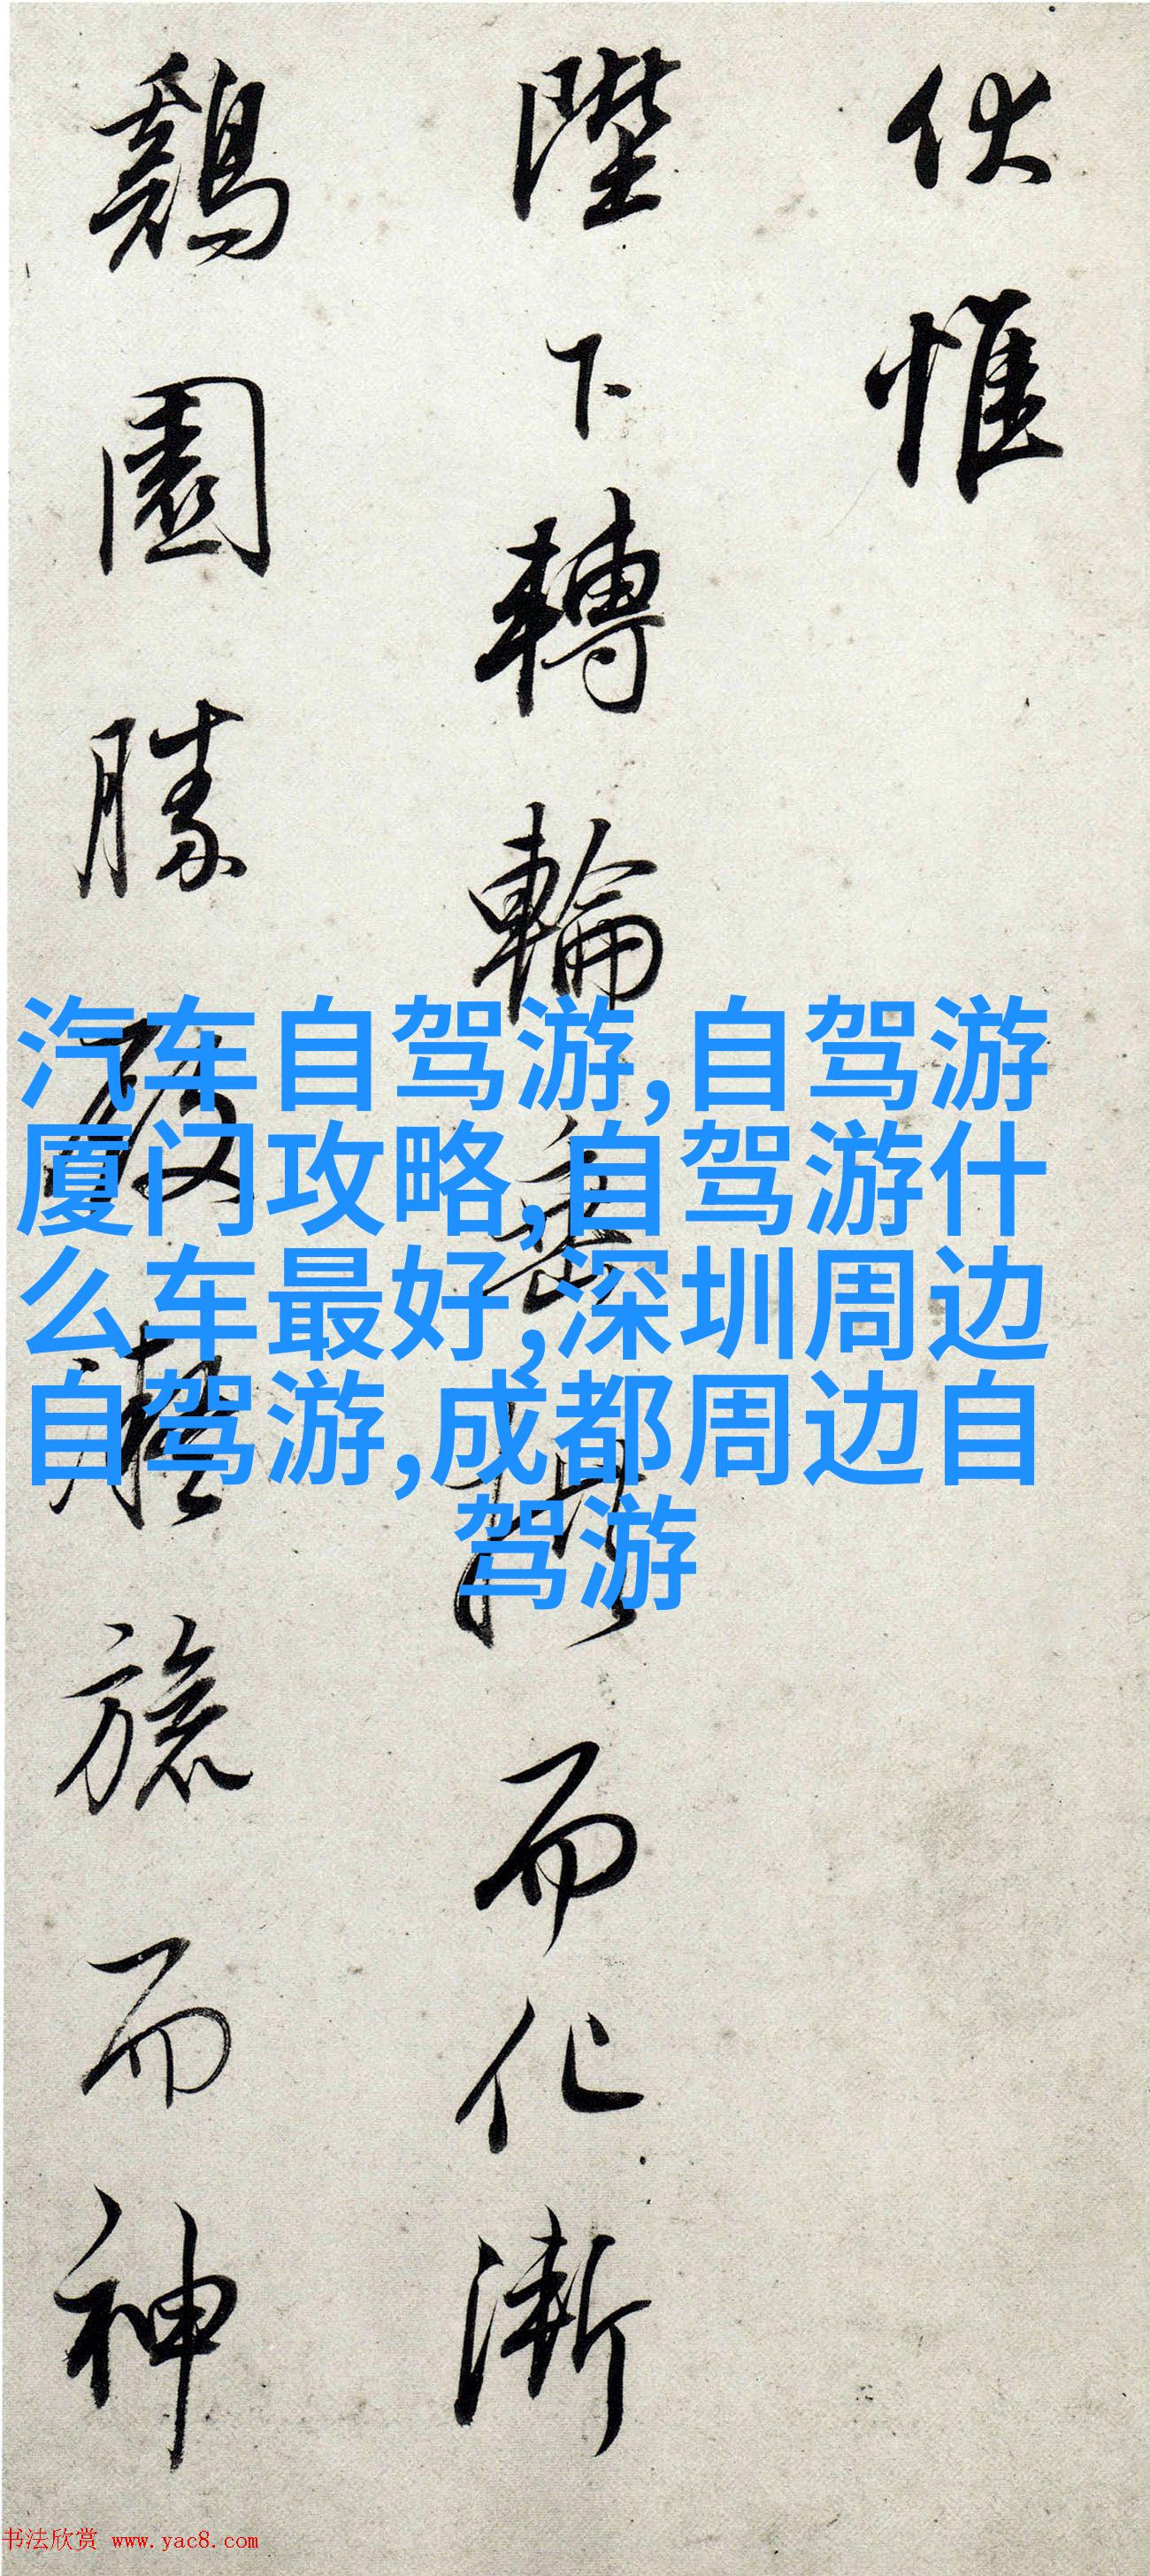 伏惟
陛下轉輪垂拱而化漸
鷄園勝殿凝旒而神
汽车自驾游,自驾游
厦门攻略,自驾游什
么车最好,深圳周边
自驾游,成都周边自
驾游
书法欣赏 www.yac8.com